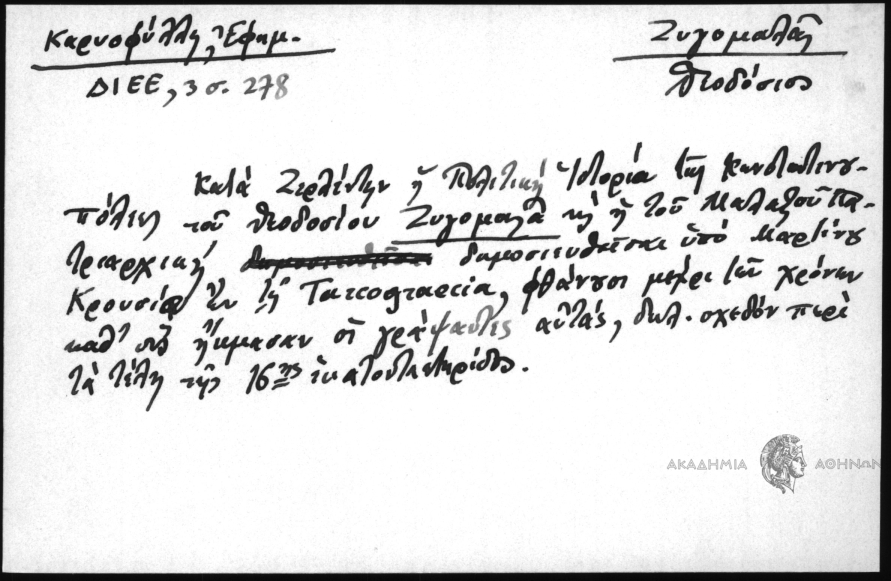 Καρυοφύλλη, Ἐφημ.
ΔΙΕΕ, 3 σ. 278
Ζυγομαλᾶς
Θεοδόσιος
Κατὰ Ζερλέντην ἡ Πολιτικὴ Ἱστορία τῆς Κωνσταντινου-
πόλεως τοῦ Θεοδοσίου Ζυγομαλᾶ κὴ ἡ τοῦ Μαλαξοῦ Πα-
τριαρχικὴ δημοσιευθεῖσαι ὑπὸ Μαρτίνου
Κρουσίου ἐν τῇ Turcograecia, φθάνουσι μέχρι τῶν χρόνων
καθ' οὓς ἤκμασαν οἱ γράψαντες αὐτάς, δηλ. σχεδὸν περὶ
τὰ τέλη τῆς 16ης ἑκατονταετηρίδος.
ΑΚΑΔΗΜΙΑ ΑΘΗΝΩΝ